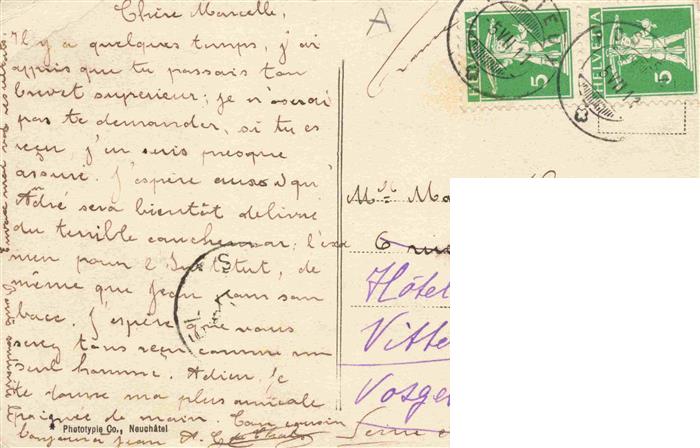 Chère Marcelle,
Il y a quelques temps, j'ai
appris que tu passais ton
brevet supérieur; je n'oserai
pas te demander, si tu es
reçu, j'en suis presque
assuré. J'espère aussi qu'
Adré sera bientôt délivré
du terrible cauchemar; l'exa
men pour l'Institut, de
même que Jean dans son
bacc. J'espère que vous
serez tous reçu comme un
seul homme. Adieu, je
te donne ma plus amicale
poignée de main. Ton cousin
bonjour à Jean A.
* Phototypie Co., Neuchâtel
A
HELVETIA 5
HELVETIA 5
Mlle Ma
6 rue
Hôtel
Vitte
Vosge
Seine